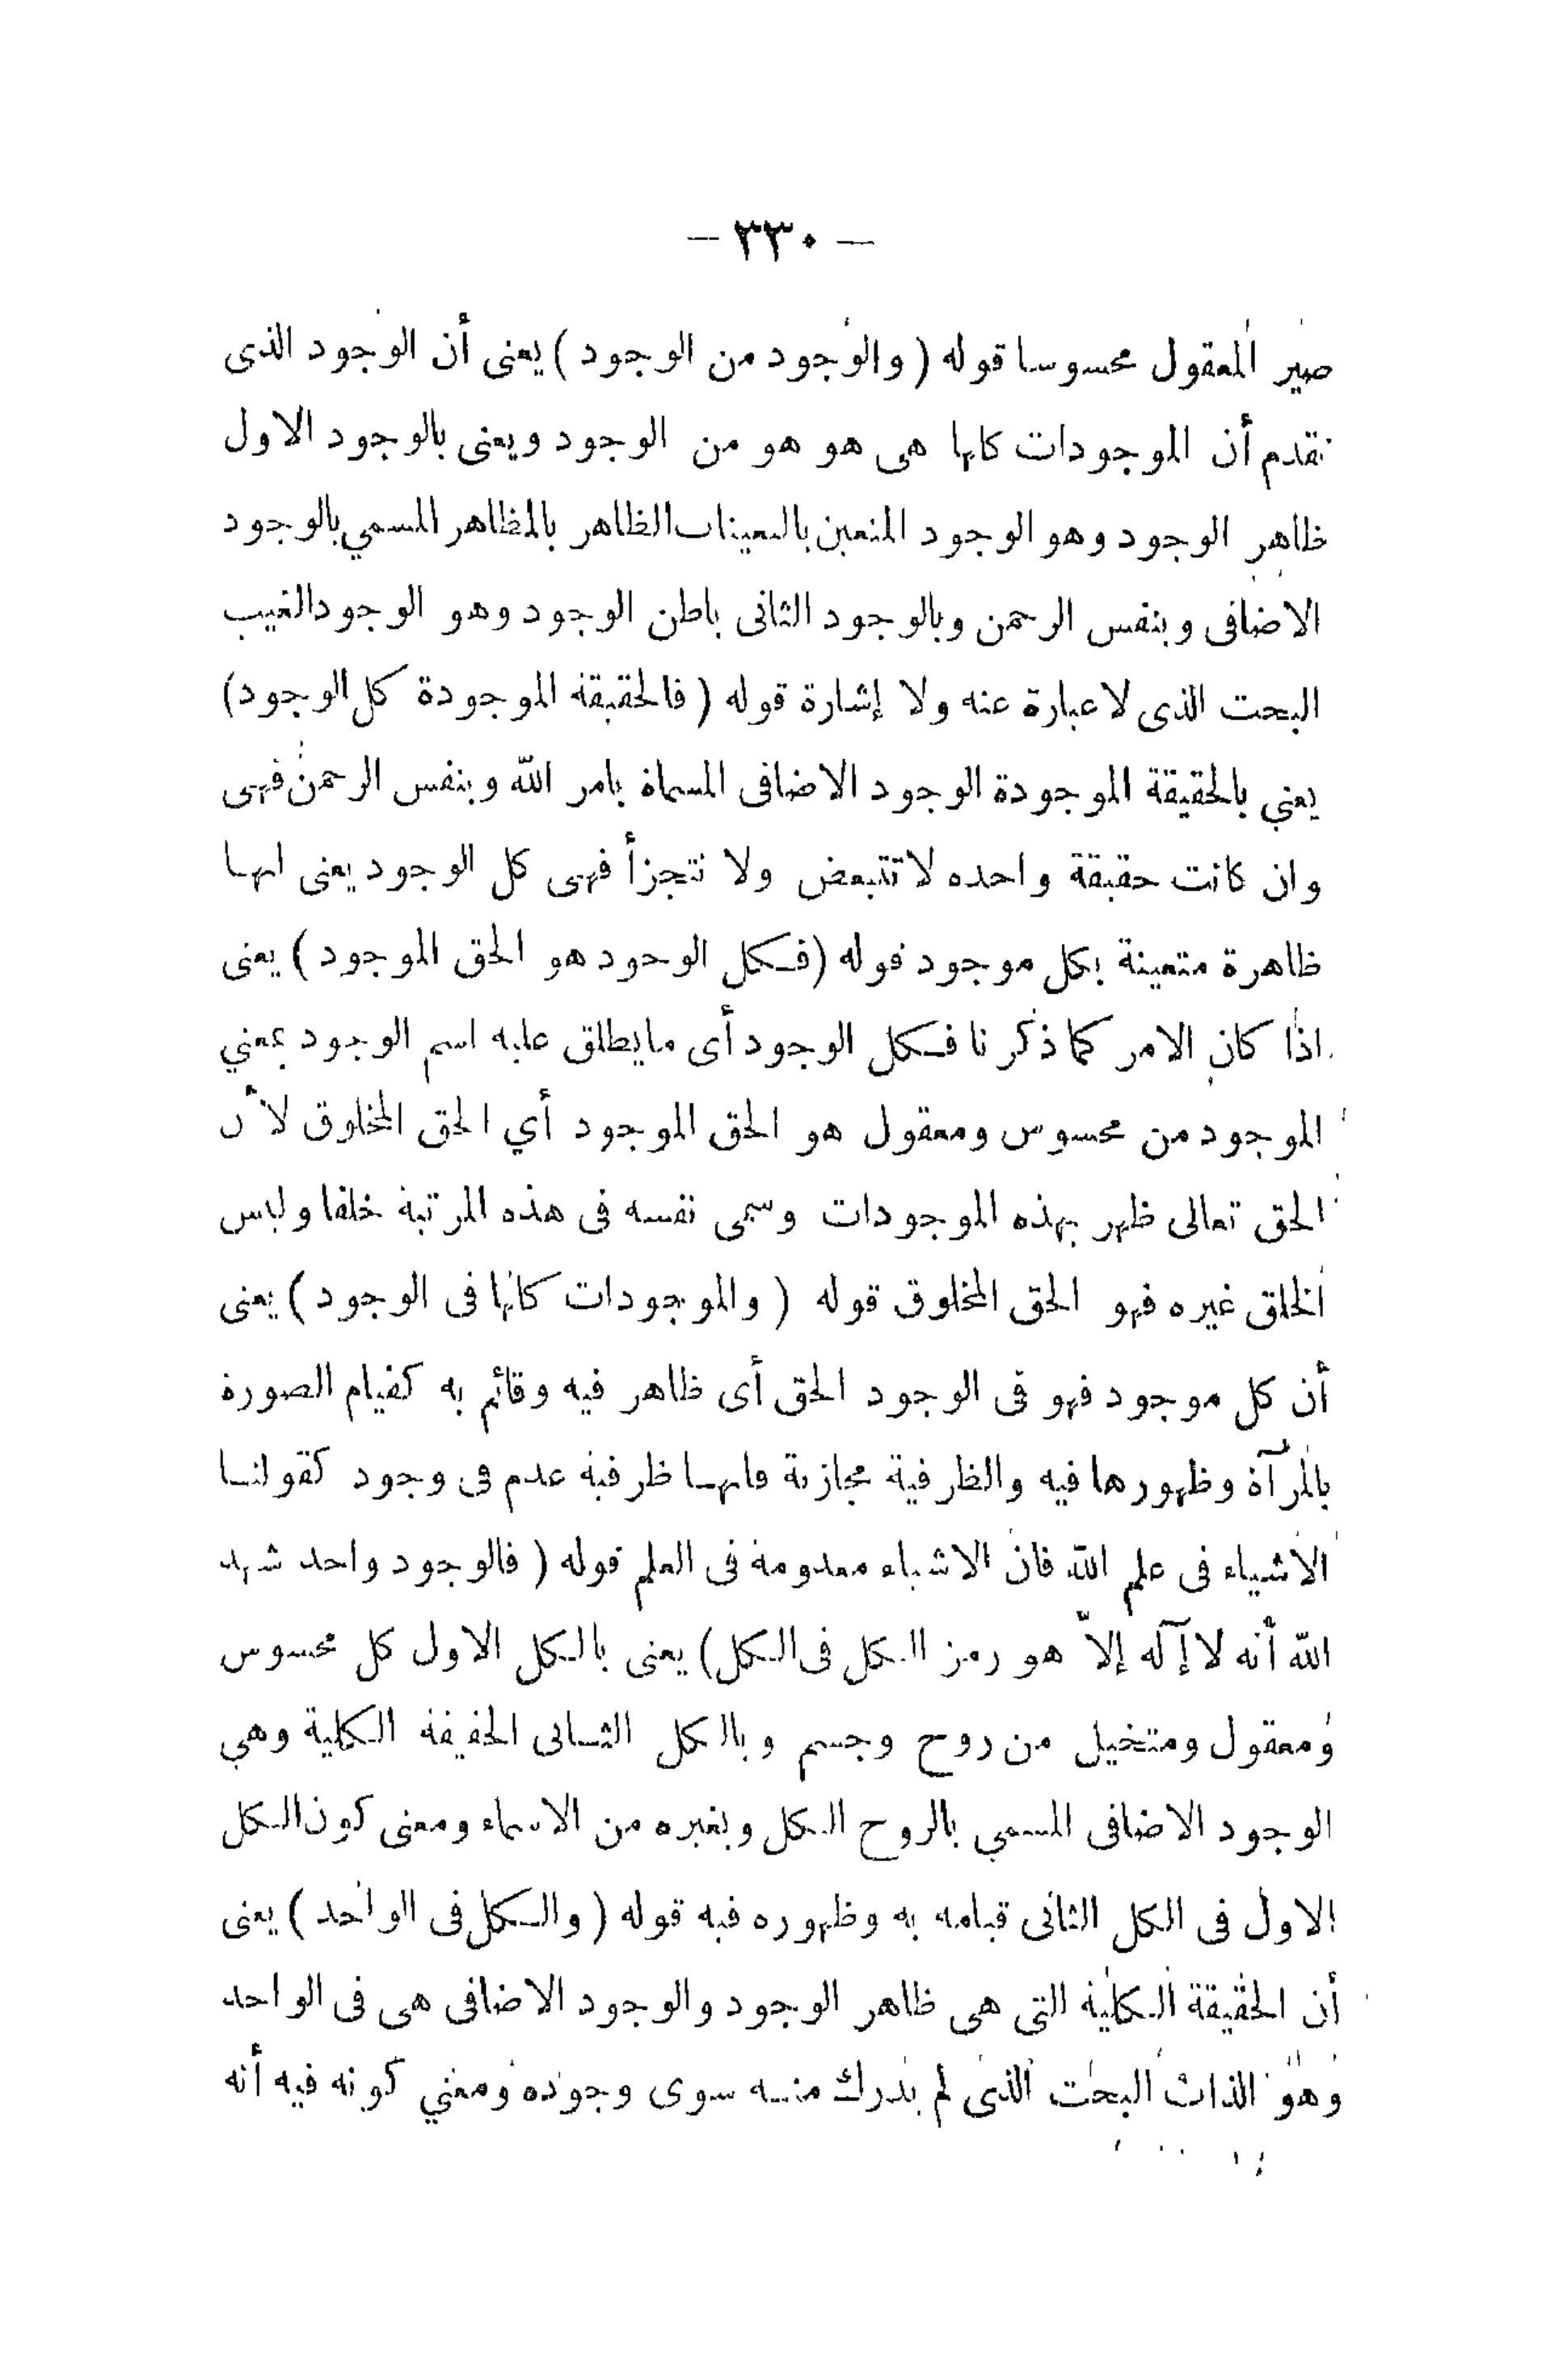 — ٣٣٠ —
صير المعقول محسوسا قوله ( والوجود من الوجود ) يعنى أن الوجود الذى
تقدم أن الموجودات كلها هى هو هو من الوجود ويعنى بالوجود الاول
ظاهر الوجود وهو الوجود المتعين بالتعينات الظاهر بالمظاهر المسمي بالوجود
الاضافى وبنفس الرحمن وبالوجود الثانى باطن الوجود وهو الوجود الغيب
البحت الذى لا عبارة عنه ولا إشارة قوله ( فالحقيقة الموجودة كل الوجود )
يعني بالحقيقة الموجودة الوجود الاضافى المسماة بامر اللّه وبنفس الرحمن فهى
وان كانت حقيقة واحده لا تتبعض ولا تتجزأ فهى كل الوجود يعنى انها
ظاهرة متعينة بكل موجود قوله (فكل الوجود هو الحق الموجود ) يعنى
اذا كان الامر كما ذكرنا فكل الوجود أى ما يطلق عليه اسم الوجود بمعني
الموجود من محسوس ومعقول هو الحق الموجود أي الحق المخلوق لأن
الحق تعالى ظهر بهذه الموجودات وسمى نفسه فى هذه المرتبة خلقا وليس
الخلق غيره فهو الحق المخلوق قوله ( والموجودات كلها فى الوجود ) يعنى
أن كل موجود فهو فى الوجود الحق أى ظاهر فيه وقائم به كقيام الصورة
بالمرآة وظهورها فيه والظرفية مجازية فانها ظرفية عدم فى وجود كقولنا
الاشياء فى علم اللّه فان الاشياء معدومة فى العلم قوله ( فالوجود واحد شهد
اللّه أنه لا إآله إلاّ هو رمز الكل فى الكل) يعنى بالكل الاول كل محسوس
ومعقول ومتخيل من روح وجسم وبالكل الثانى الحقيقة الكلية وهي
الوجود الاضافى المسمي بالروح الكل وبغيره من الاسماء ومعنى كون الكل
الاول فى الكل الثانى قيامه به وظهوره فيه قوله ( والكل فى الواحد ) يعنى
أن الحقيقة الكلية التى هى ظاهر الوجود والوجود الاضافى هى فى الواحد
وهو الذات البحت الذى لم يدرك منه سوى وجوده ومعني كونه فيه أنه